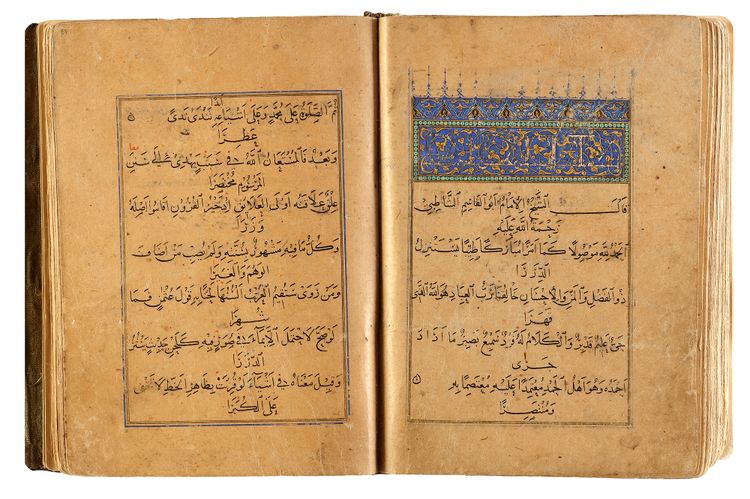 قال الشيخ الإمام أبو القاسم الشاطبي
رحمة الله عليه
الحمد لله موصولا كما أمرا مباركا طيبا يستنزل
الدررا
ذو الفضل والمن والإحسان خالقنا رب العباد هو الله الذي
قهرا
حي عليم قدير والكلام له فرد سميع بصير ما أراد
جرى
أحمده وهو أهل الحمد معتمدا عليه معتصما به
ومنتصرا
ثم الصلوة على محمد وعلى أشياعه تندى ندى
عطرا
وبعد فالمستعان الله في سبب يهدي إلى سنن
المرسوم مختصرا
علق علائقه أولى العلائق إذ خير القرون أقاموا أصله
وزرا
وكل ما فيه مشهور بسنته ولم يصب من أضاف
الوهم والغيرا
ومن روى ستقيم العرب ألسنها لحنا به قول عثمن فما
شهرا
لو صح لاحتمل الإيماء في صور فيه كلحن حديث ينثر
الدررا
وقيل معناه في أشياء لو قرئت بظاهر الخط لا تخفى
على الكبرا